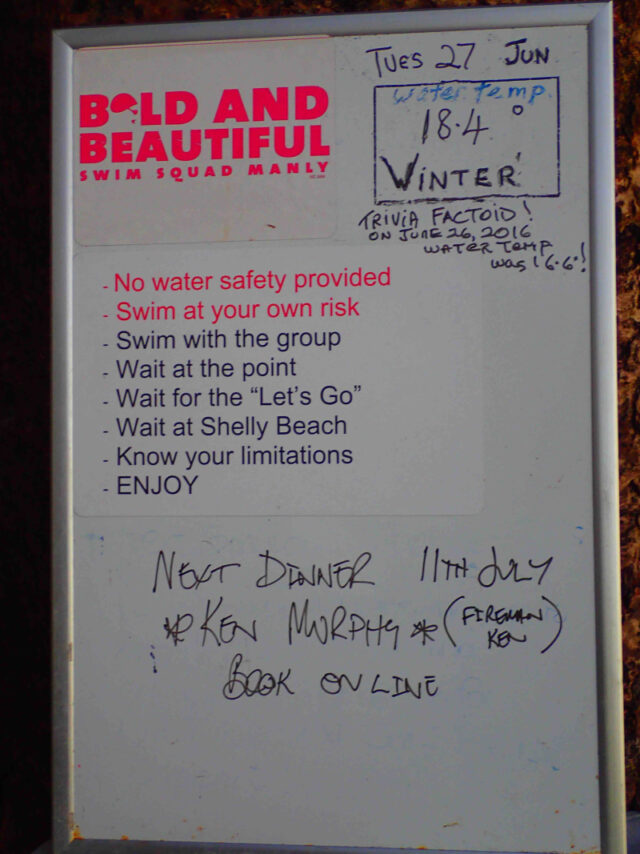 BOLD AND
BEAUTIFUL
SWIM SQUAD MANLY
TUES 27 JUN
Water Temp
18.4°
WINTER
TRIVIA FACTOID!
ON JUNE 26, 2016
WATER TEMP
was 16.6°!
- No water safety provided
- Swim at your own risk
- Swim with the group
- Wait at the point
- Wait for the “Let’s Go”
- Wait at Shelly Beach
- Know your limitations
- ENJOY
NEXT DINNER 11TH JULY
* KEN MURPHY * (FIREMAN KEN)
BOOK ONLINE